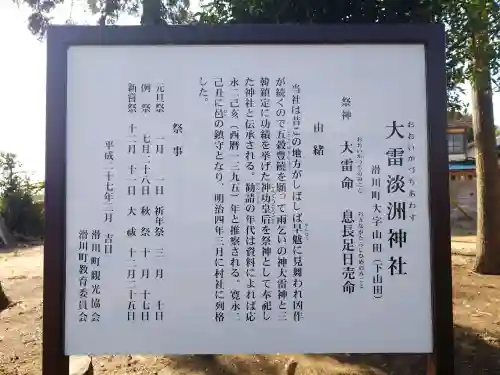 おおいかづちあわす
大雷淡洲神社
滑川町大字山田(下山田)
祭神
おおいかづちのみこと
大雷命
おきながたらしひめのみこと
息長足日売命
由緒
当社は昔この地方がしばしば旱魃に見舞われ凶作
が続くので五穀豊穣を願って雨乞いの神大雷神と三
韓鎮定に功績を挙げた神功皇后を祭神として奉祀し
た神社と伝承される。勧請の年代は資料によれば応
永二己亥(西暦一三九五)年と推察される。寛永二
己丑に邑の鎮守となり、明治四年三月に村社に列格
した。
祭事
元旦祭 一月 一日 祈年祭 三月 十日
例祭 七月二十八日 秋祭 十月 十七日
新嘗祭 十二月 十一日 大祓 十二月二十五日
平成二十七年三月 吉日
滑川町観光協会
滑川町教育委員会